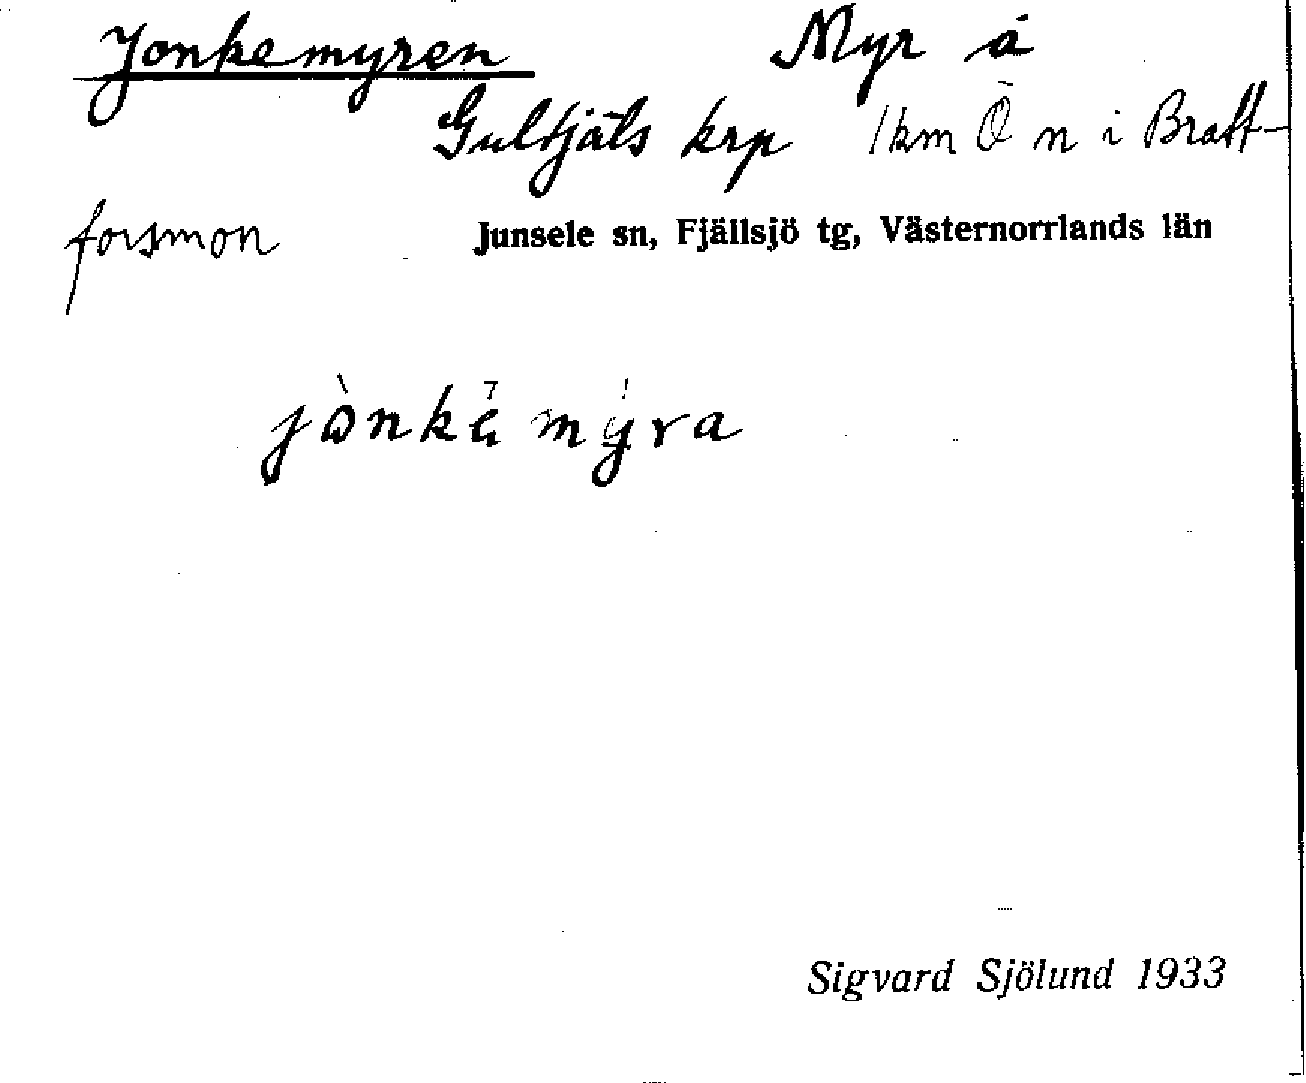 Jonkemyren Myr å
Gulsjäls krp 1 km Ö n i Bratt-
forsmon Junsele sn, Fjällsjö tg, Västernorrlands län
Sigvard Sjölund 1933